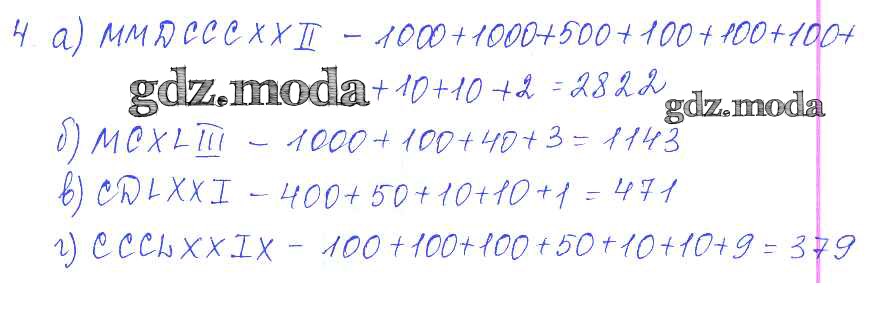 4. а) MMDCCCXXII – 1000+1000+500+100+100+100+
gdz.moda +10+10+2=2822 gdz.moda
б) MCXLIII – 1000+100+40+3=1143
в) CDLXXI – 400+50+10+10+1=471
г) CCCLXXIX – 100+100+100+50+10+10+9=379